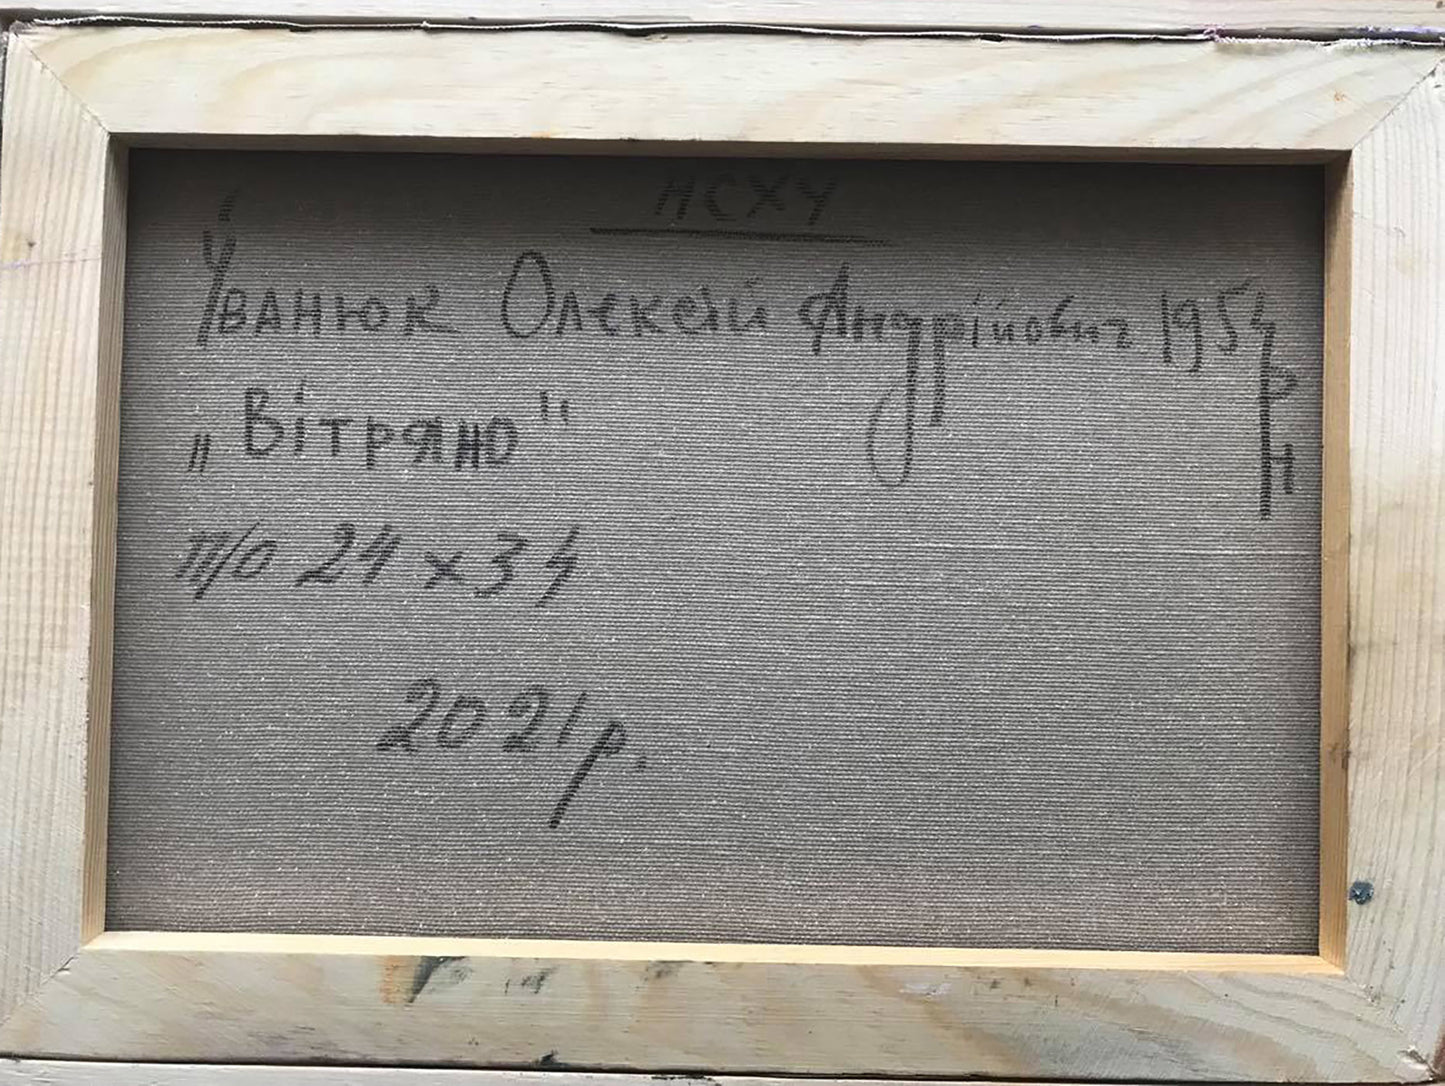 НСХУ
Іванюк Олексій Андрійович 1954
р
н
„Вітряно"
п/о 24 х 34
2021 р.